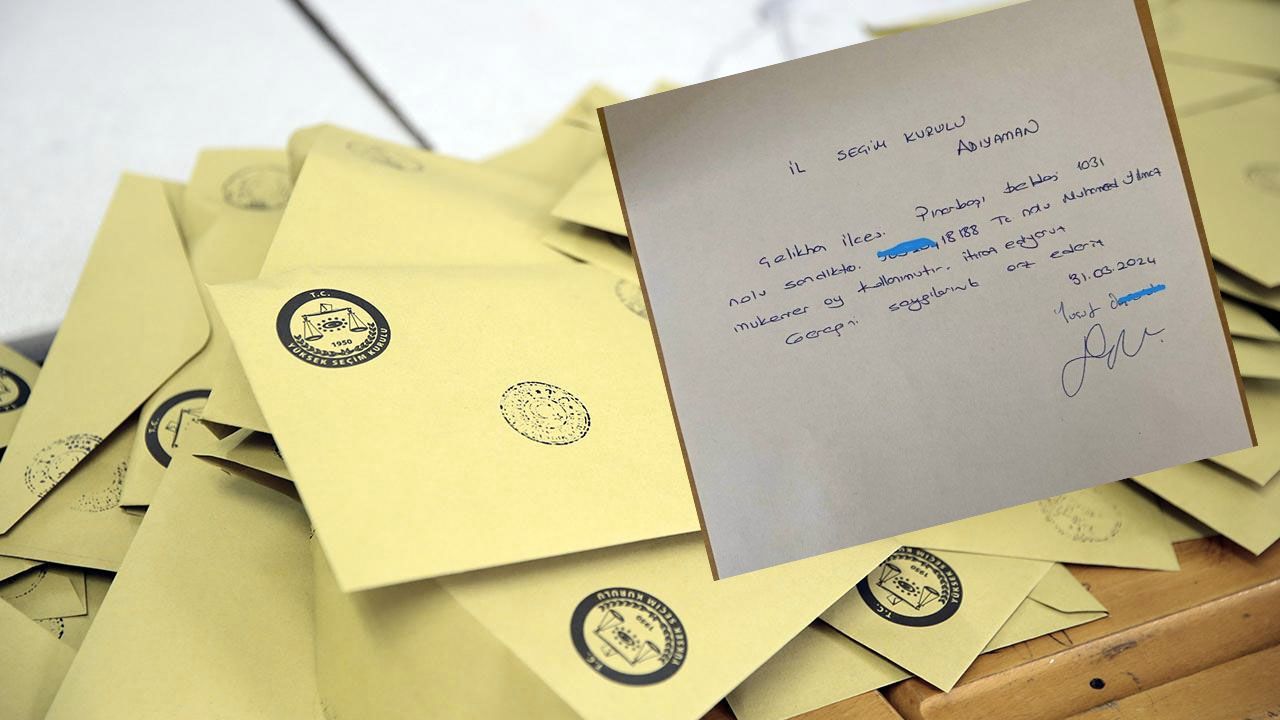 T.C.
YÜKSEK SEÇİM KURULU
1950
T.C.
YÜKSEK SEÇİM KURULU
1950
T.C.
YÜKSEK SEÇİM KURULU
1950
İL SEÇİM KURULU
ADIYAMAN
Çelikhan ilçesi Pınarbaşı beldesi 1031
nolu sandıkta. 18188 Tc nolu Muhammed Yılmaz
mükerrer oy kullanmıştır. itiraz ediyorum
Gereğini saygılarımla arz ederim
31.03.2024
Yusuf